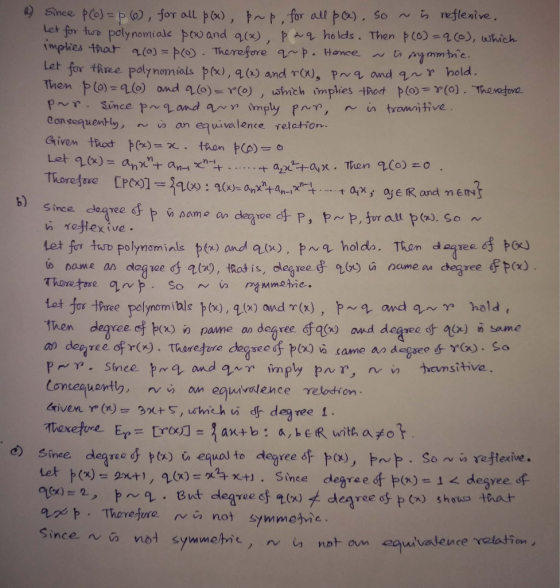 a) Since p(0) = p(0), for all p(x), p~p, for all p(x). So ~ is reflexive.
Let for two polynomials p(x) and q(x), p~q holds. Then p(0) = q(0), which
implies that q(0) = p(0). Therefore q~p. Hence ~ is symmetric.
Let for three polynomials p(x), q(x) and r(x), p~q and q~r hold.
Then p(0) = q(0) and q(0) = r(0), which implies that p(0) = r(0). Therefore
p~r. Since p~q and q~r imply p~r, ~ is transitive.
Consequently, ~ is an equivalence relation.
Given that p(x) = x. then p(0) = 0
Let q(x) = aₙxⁿ + aₙ₋₁xⁿ⁻¹ + ........ + a₂x² + a₁x. Then q(0) = 0.
Therefore [p(x)] = {q(x) : q(x) = aₙxⁿ + aₙ₋₁xⁿ⁻¹ + ... + a₁x, aⱼ∈ℝ and n∈ℕ}
b) Since degree of p is same as degree of p, p~p, for all p(x). So ~
is reflexive.
Let for two polynomials p(x) and q(x), p~q holds. Then degree of p(x)
is same as degree of q(x), that is, degree of q(x) is same as degree of p(x).
Therefore q~p. So ~ is symmetric.
Let for three polynomials p(x), q(x) and r(x), p~q and q~r hold,
Then degree of p(x) is same as degree of q(x) and degree of q(x) is same
as degree of r(x). Therefore degree of p(x) is same as degree of r(x). So
p~r. Since p~q and q~r imply p~r, ~ is transitive.
Consequently, ~ is an equivalence relation.
Given r(x) = 3x+5, which is of degree 1.
Therefore Eᵣ = [r(x)] = {ax+b : a, b∈ℝ with a≠0}.
c) Since degree of p(x) is equal to degree of p(x), p~p. So ~ is reflexive.
Let p(x) = 2x+1, q(x) = x²+x+1. Since degree of p(x) = 1 < degree of
q(x) = 2, p~q. But degree of q(x) ≠ degree of p(x) shows that
q≁p. Therefore ~ is not symmetric.
Since ~ is not symmetric, ~ is not an equivalence relation.